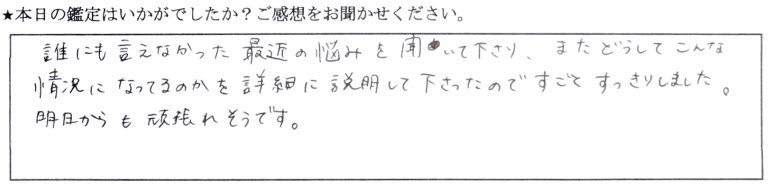 ★本日の鑑定はいかがでしたか？ご感想をお聞かせください。
誰にも言えなかった最近の悩みを聞いて下さり、またどうしてこんな
情況になってるのかを詳細に説明して下さったのですごくすっきりしました。
明日からも頑張れそうです。